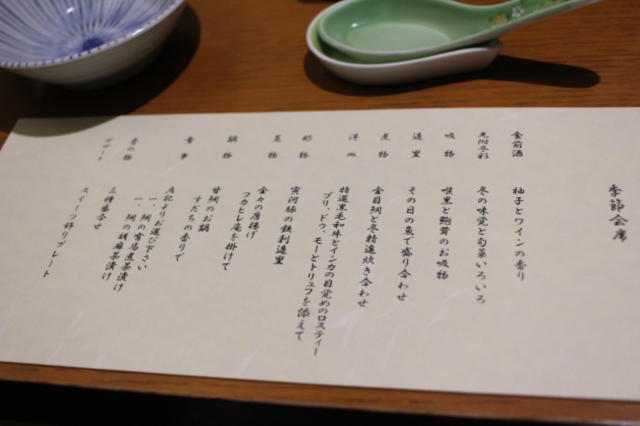 季節会席
食前酒 柚子とワインの香り
先附冬彩 冬の味覚と旬菜いろいろ
吸物 喉黒と鮑茸のお吸物
造里 その日の魚で盛り合わせ
煮物 金目鯛と冬精進炊き合わせ
洋皿 特選黒毛和牛とインカの目覚めのロスティー
ブリ、ドゥ、モーとトリュフを添えて
酢物 実河豚の鉄刺造里
蒸物 金々の唐揚げ
フカヒレ庵を掛けて
鍋物 甘鯛のお鍋
すだちの香りで
食事 左記よりお選び下さい
一、鯛の有馬煮茶漬け
一、鯛の胡麻茶漬け
香の物 三種盛合せ
デザート スイーツ飾りプレート